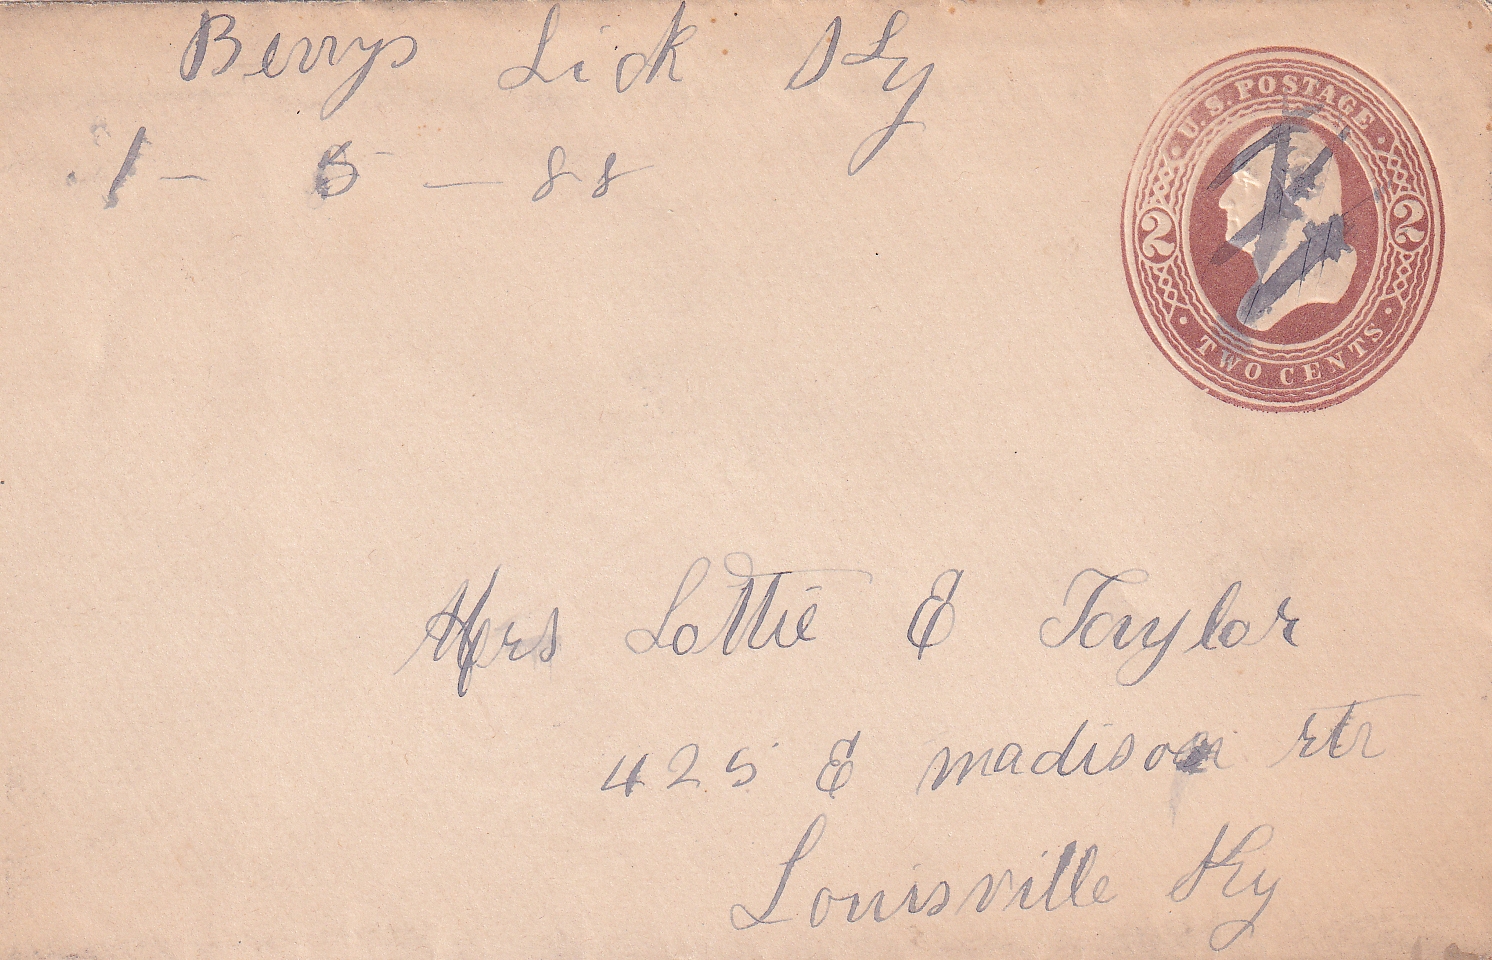 Berrys Lick Ky
1 - 5 - 88
U.S. POSTAGE
2 2
TWO CENTS
Mrs Lottie E Taylor
425 E madison str
Louisville Ky